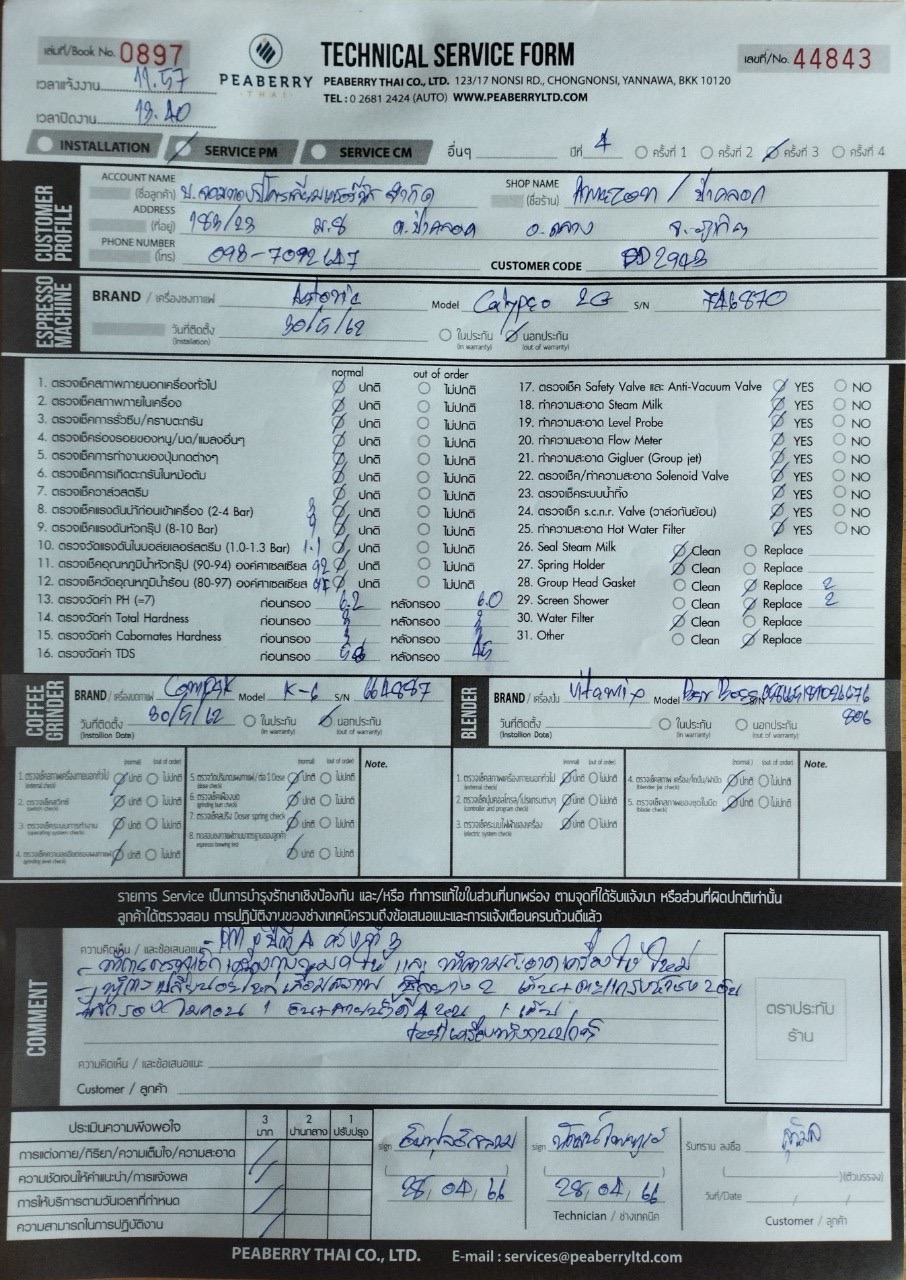 เล่มที่/Book No. 0897
PEABERRY
THAI
TECHNICAL SERVICE FORM
PEABERRY THAI CO., LTD. 123/17 NONSI RD., CHONGNONSI, YANNAWA, BKK 10120
TEL : 0 2681 2424 (AUTO) WWW.PEABERRYLTD.COM
เลขที่/No. 44843
เวลาแจ้งงาน 11.57
เวลาปิดงาน 13.40
INSTALLATION SERVICE PM SERVICE CM อื่นๆ ปีที่ 4 ครั้งที่ 1 ครั้งที่ 2 ครั้งที่ 3 ครั้งที่ 4
CUSTOMER PROFILE
ACCOUNT NAME (ชื่อลูกค้า)
SHOP NAME (ชื่อร้าน) Amazon / ป่าคลอก
ADDRESS (ที่อยู่) 183/23 ม.8 ต.ป่าคลอก อ.ถลาง จ.ภูเก็ต
PHONE NUMBER (โทร) 098-7092647 CUSTOMER CODE
ESPRESSO MACHINE
BRAND / เครื่องชงกาแฟ Astoria Model Calypso 2G S/N 746870
วันที่ติดตั้ง (Installation) 30/5/62 ในประกัน (in warranty) นอกประกัน (out of warranty)
normal out of order
1. ตรวจเช็คสภาพภายนอกเครื่องทั่วไป ปกติ ไม่ปกติ
2. ตรวจเช็คสภาพภายในเครื่อง ปกติ ไม่ปกติ
3. ตรวจเช็คการรั่วซึม/คราบตะกรัน ปกติ ไม่ปกติ
4. ตรวจเช็คร่องรอยของหนู/มด/แมลงอื่นๆ ปกติ ไม่ปกติ
5. ตรวจเช็คการทำงานของปุ่มกดต่างๆ ปกติ ไม่ปกติ
6. ตรวจเช็คการเกิดตะกรันในหม้อต้ม ปกติ ไม่ปกติ
7. ตรวจเช็ควาล์วสตรีม ปกติ ไม่ปกติ
8. ตรวจเช็คแรงดันน้ำก่อนเข้าเครื่อง (2-4 Bar) 3 ปกติ ไม่ปกติ
9. ตรวจเช็คแรงดันหัวกรุ๊ป (8-10 Bar) 9 ปกติ ไม่ปกติ
10. ตรวจวัดแรงดันในบอยเลอร์สตรีม (1.0-1.3 Bar) 1.1 ปกติ ไม่ปกติ
11. ตรวจเช็คอุณหภูมิน้ำหัวกรุ๊ป (90-94) องศาเซลเซียส 92 ปกติ ไม่ปกติ
12. ตรวจเช็ควัดอุณหภูมิน้ำร้อน (80-97) องศาเซลเซียส ปกติ ไม่ปกติ
13. ตรวจวัดค่า PH (=7) ก่อนกรอง 6.2 หลังกรอง 6.0
14. ตรวจวัดค่า Total Hardness ก่อนกรอง หลังกรอง
15. ตรวจวัดค่า Cabornates Hardness ก่อนกรอง หลังกรอง
16. ตรวจวัดค่า TDS ก่อนกรอง หลังกรอง 45
17. ตรวจเช็ค Safety Valve และ Anti-Vacuum Valve YES NO
18. ทำความสะอาด Steam Milk YES NO
19. ทำความสะอาด Level Probe YES NO
20. ทำความสะอาด Flow Meter YES NO
21. ทำความสะอาด Gigluer (Group jet) YES NO
22. ตรวจเช็ค/ทำความสะอาด Solenoid Valve YES NO
23. ตรวจเช็คระบบน้ำทิ้ง YES NO
24. ตรวจเช็ค s.c.n.r. Valve (วาล์วกันย้อน) YES NO
25. ทำความสะอาด Hot Water Filter YES NO
26. Seal Steam Milk Clean Replace
27. Spring Holder Clean Replace
28. Group Head Gasket Clean Replace 2
29. Screen Shower Clean Replace 2
30. Water Filter Clean Replace
31. Other Clean Replace
COFFEE GRINDER
BRAND / เครื่องบดกาแฟ Compak Model K-6 S/N 664887
วันที่ติดตั้ง (Installion Date) 30/5/62 ในประกัน (in warranty) นอกประกัน (out of warranty)
BLENDER
BRAND / เครื่องปั่น Vitamix Model Bar Boss S/N
806
วันที่ติดตั้ง (Installion Date) ในประกัน (in warranty) นอกประกัน (out of warranty)
(normal) (out of order)
1. ตรวจเช็คสภาพเครื่องภายนอกทั่วไป (external check) ปกติ ไม่ปกติ
2. ตรวจเช็คสวิทซ์ (switch check) ปกติ ไม่ปกติ
3. ตรวจเช็คระบบการทำงาน (operating system check) ปกติ ไม่ปกติ
4. ตรวจเช็คความละเอียดของผงกาแฟ (grinding level check) ปกติ ไม่ปกติ
5. ตรวจวัดปริมาณผงกาแฟ/ต่อ 1 Dose (dose check) ปกติ ไม่ปกติ
6. ตรวจเช็คเฟืองบด (grinding burr check) ปกติ ไม่ปกติ
7. ตรวจเช็คสปริง Doser spring check ปกติ ไม่ปกติ
8. ทดสอบชงกาแฟตามมาตรฐานของลูกค้า espresso brewing test ปกติ ไม่ปกติ
Note.
1. ตรวจเช็คสภาพเครื่องภายนอกทั่วไป (external check) ปกติ ไม่ปกติ
2. ตรวจเช็คปุ่มคอนโทรล/โปรแกรมต่างๆ (controller and program check) ปกติ ไม่ปกติ
3. ตรวจเช็คระบบไฟฟ้าของเครื่อง (electric system check) ปกติ ไม่ปกติ
4. ตรวจเช็คสภาพ เครื่อง/โถปั่น/ฝาปิด (blender jar check) ปกติ ไม่ปกติ
5. ตรวจเช็คสภาพของชุดใบมีด (blade check) ปกติ ไม่ปกติ
Note.
รายการ Service เป็นการบำรุงรักษาเชิงป้องกัน และ/หรือ ทำการแก้ไขในส่วนที่บกพร่อง ตามจุดที่ได้รับแจ้งมา หรือส่วนที่ผิดปกติเท่านั้น
ลูกค้าได้ตรวจสอบ การปฏิบัติงานของช่างเทคนิครวมถึงข้อเสนอแนะและการแจ้งเตือนครบถ้วนดีแล้ว
COMMENT
ความคิดเห็น / และข้อเสนอแนะ PM ปีที่ 4 ครั้งที่ 3
ตราประทับ
ร้าน
ความคิดเห็น / และข้อเสนอแนะ
Customer / ลูกค้า
ประเมินความพึงพอใจ 3 มาก 2 ปานกลาง 1 ปรับปรุง
การแต่งกาย/กิริยา/ความเต็มใจ/ความสะอาด
ความชัดเจนให้คำแนะนำ/การแจ้งผล
การให้บริการตามวันเวลาที่กำหนด
ความสามารถในการปฏิบัติงาน
sign
28, 04, 66
sign
28, 04, 66
Technician / ช่างเทคนิค
รับทราบ ลงชื่อ
(ตัวบรรจง)
วันที่/Date / /
Customer / ลูกค้า
PEABERRY THAI CO., LTD. E-mail : services@peaberryltd.com